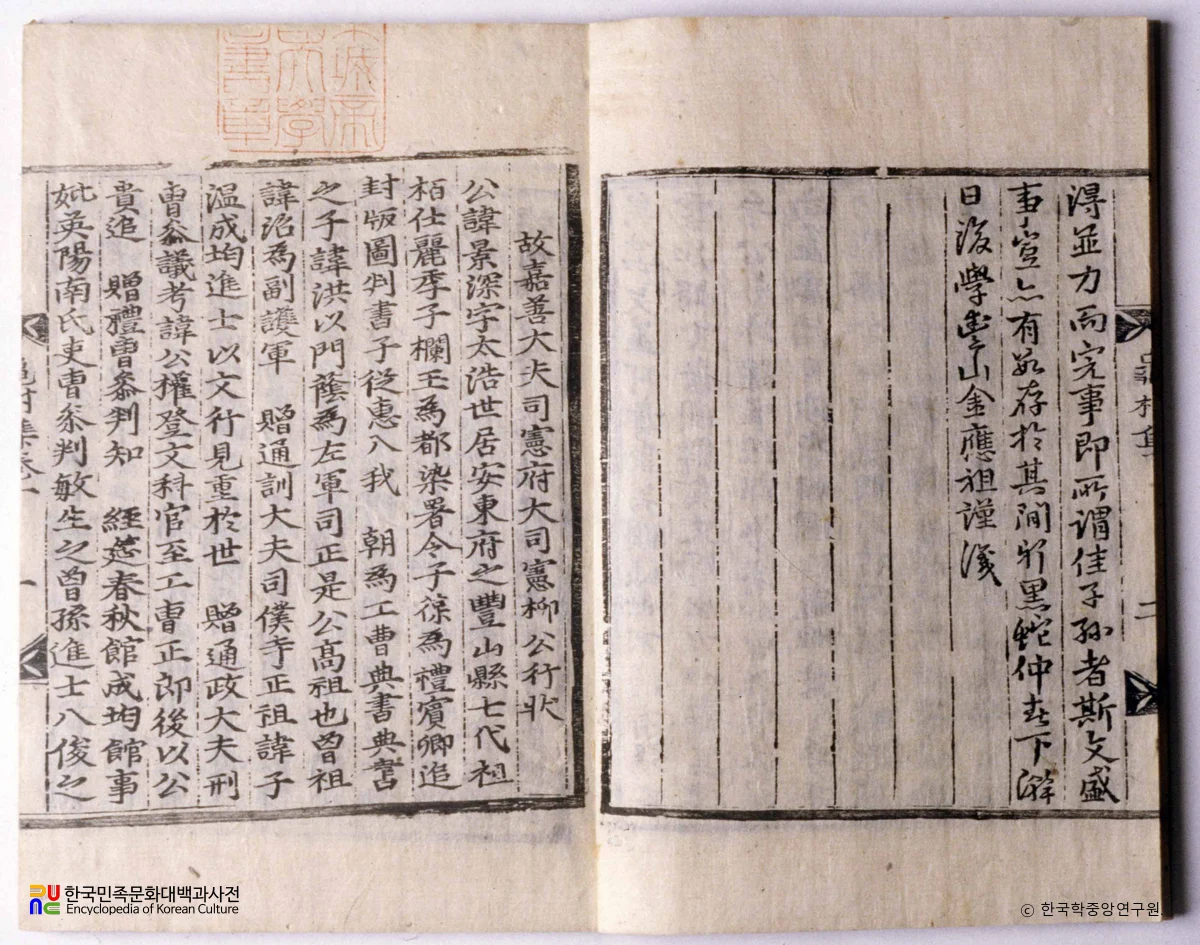 得並力而完事即所謂佳子孫者斯文盛
事豈亡有數存於其間耶黑蛇仲春下澣
日後學豊山金應祖謹識
龜村集
二
故嘉善大夫司憲府大司憲柳公行狀
公諱景深字太浩世居安東府之豐山縣七代祖
栢仕麗季子欄玉爲都染署令子葆爲禮賓卿追
封版圖判書子從惠入我 朝爲工曹典書典書
之子諱洪以門蔭爲左軍司正是公高祖也曾祖
諱沼爲副護軍 贈通訓大夫司僕寺正祖諱子
溫成均進士以文行見重於世 贈通政大夫刑
曹叅議考諱公權登文科官至工曹正郎後以公
貴追 贈禮曹叅判知 經筵春秋館成均館事
妣英陽南氏吏曹叅判敏生之曾孫進士八俊之
龜村集卷
一
城帝
學
書章
한국민족문화대백과사전
Encyclopedia of Korean Culture
© 한국학중앙연구원